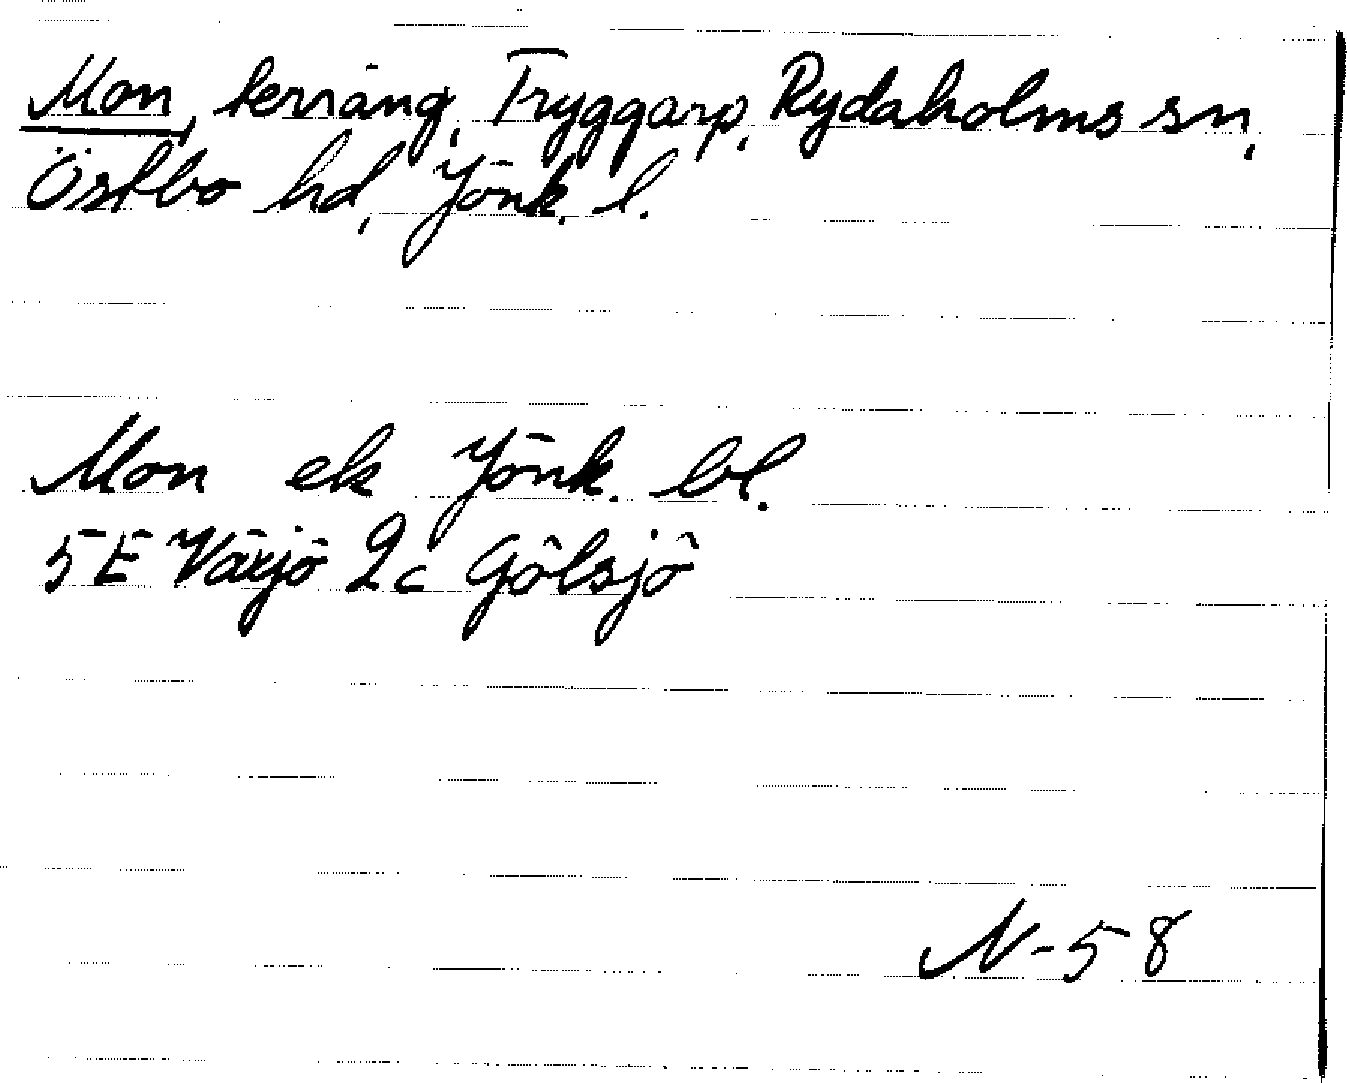 Mon, terräng, Tryggarp, Rydaholms sn,
Östbo hd, Jönk. l.
Mon ek Jönk. bl.
5E Växjö 2c Gölsjö
N-58